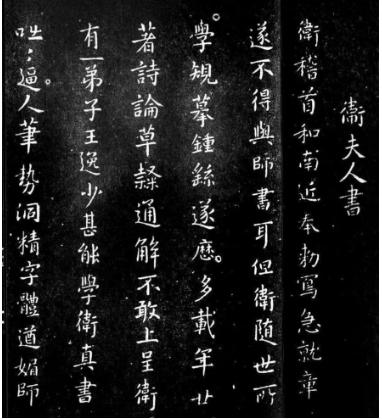 衛夫人書
衛稽首和南近奉勑寫急就章
遂不得與師書耳但衛随世所
學規摹鍾繇遂歷多載年廿
著詩論草隸通解不敢上呈衛
有一弟子王逸少甚能學衛真書
咄咄逼人筆勢洞精字體遒媚師